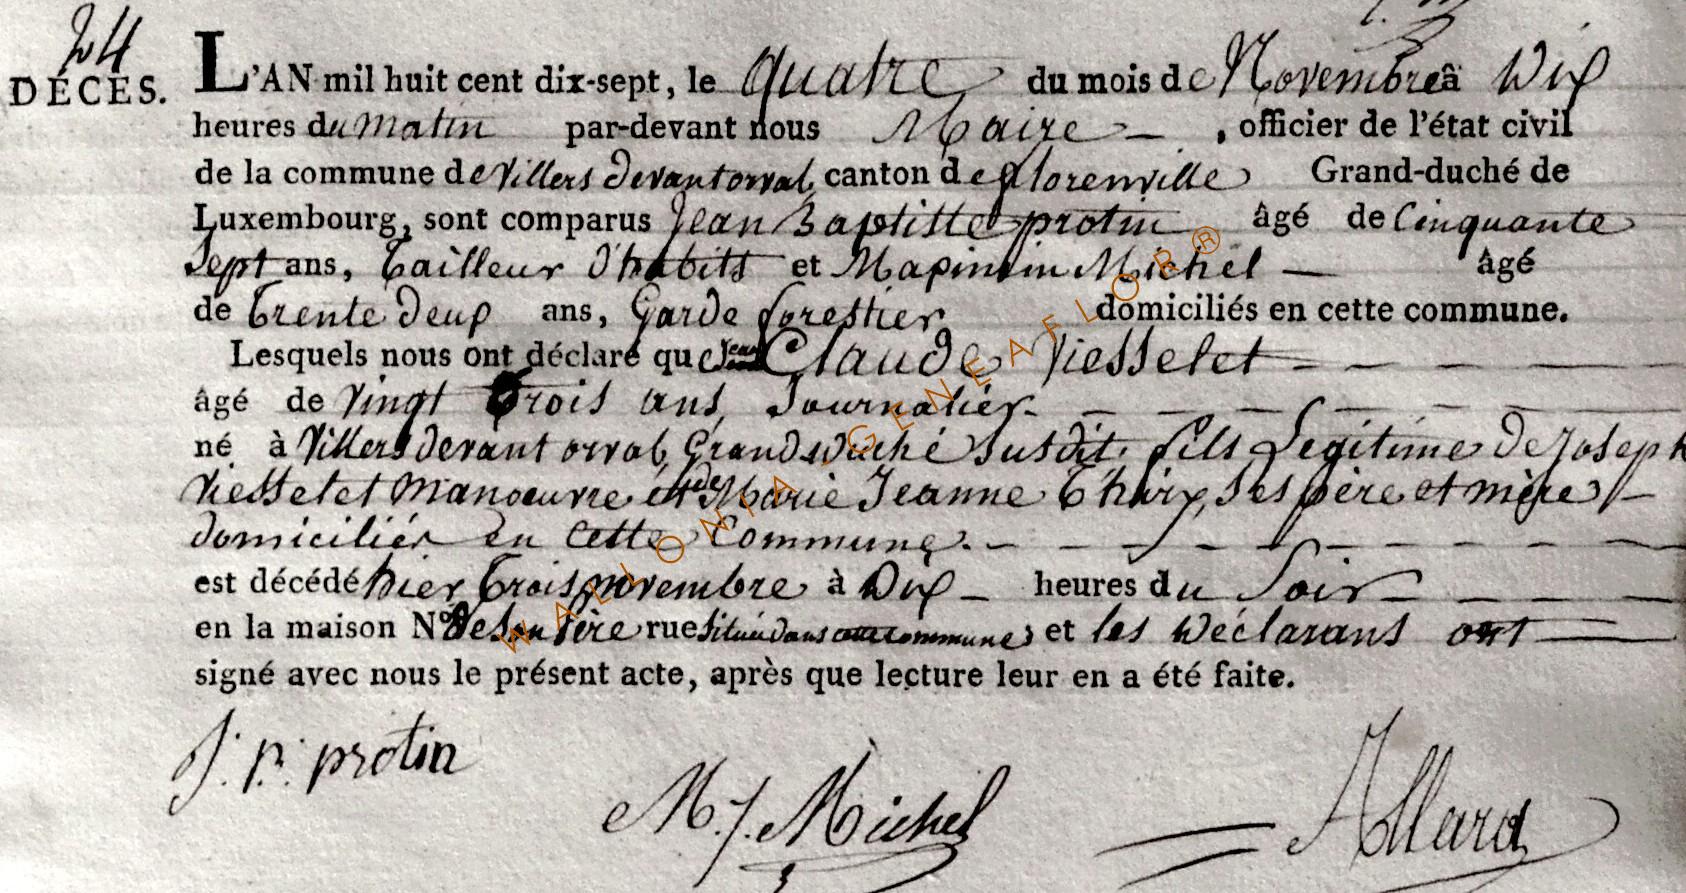 24
DÉCÈS.
L'AN mil huit cent dix-sept, le quatre du mois de Novembre à Dix
heures du matin par-devant nous Maire , officier de l'état civil
de la commune de Villers devant orval, canton de florenville Grand-duché de
Luxembourg, sont comparus Jean Baptiste protin âgé de Cinquante
Sept ans, Tailleur d'habits et Michel âgé
de Trente deux ans, Garde forestier domiciliés en cette commune.
Lesquels nous ont déclaré que Jean Claude Viesselet
âgé de Vingt trois ans, Journalier
né à Villers devant orval, Grand Duché susdit, fils Legitime de Joseph
Viesselet Manoeuvre et de Marie Jeanne Thiry, Ses père et mère
domiciliés en cette Commune.
est décédé hier Trois novembre à Dix heures du Soir
en la maison N° De Son Père rue située dans cette commune, et les Déclarans ont
signé avec nous le présent acte, après que lecture leur en a été faite.
J. p. protin
M. J. Michel
Allard
WALLONIA - GENEAFLOR®